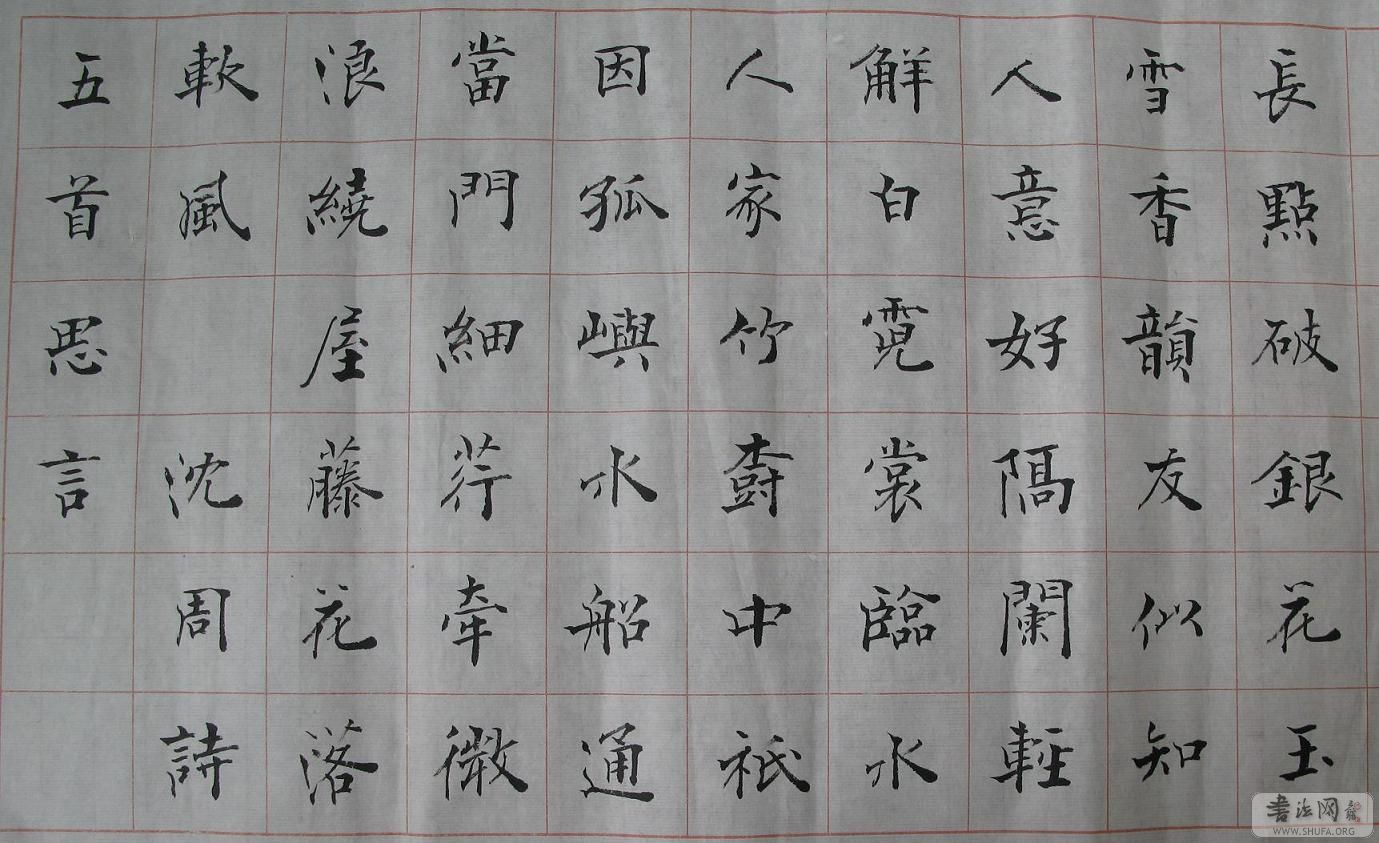 長點破銀花玉
雪香韻友似知
人意好隔闌輕
解白霓裳臨水
人家竹樹中祇
因孤嶼水船通
當門細荇牽微
浪繞屋藤花落
軟風 沈周詩
五首思言
书法网
WWW.SHUFA.ORG